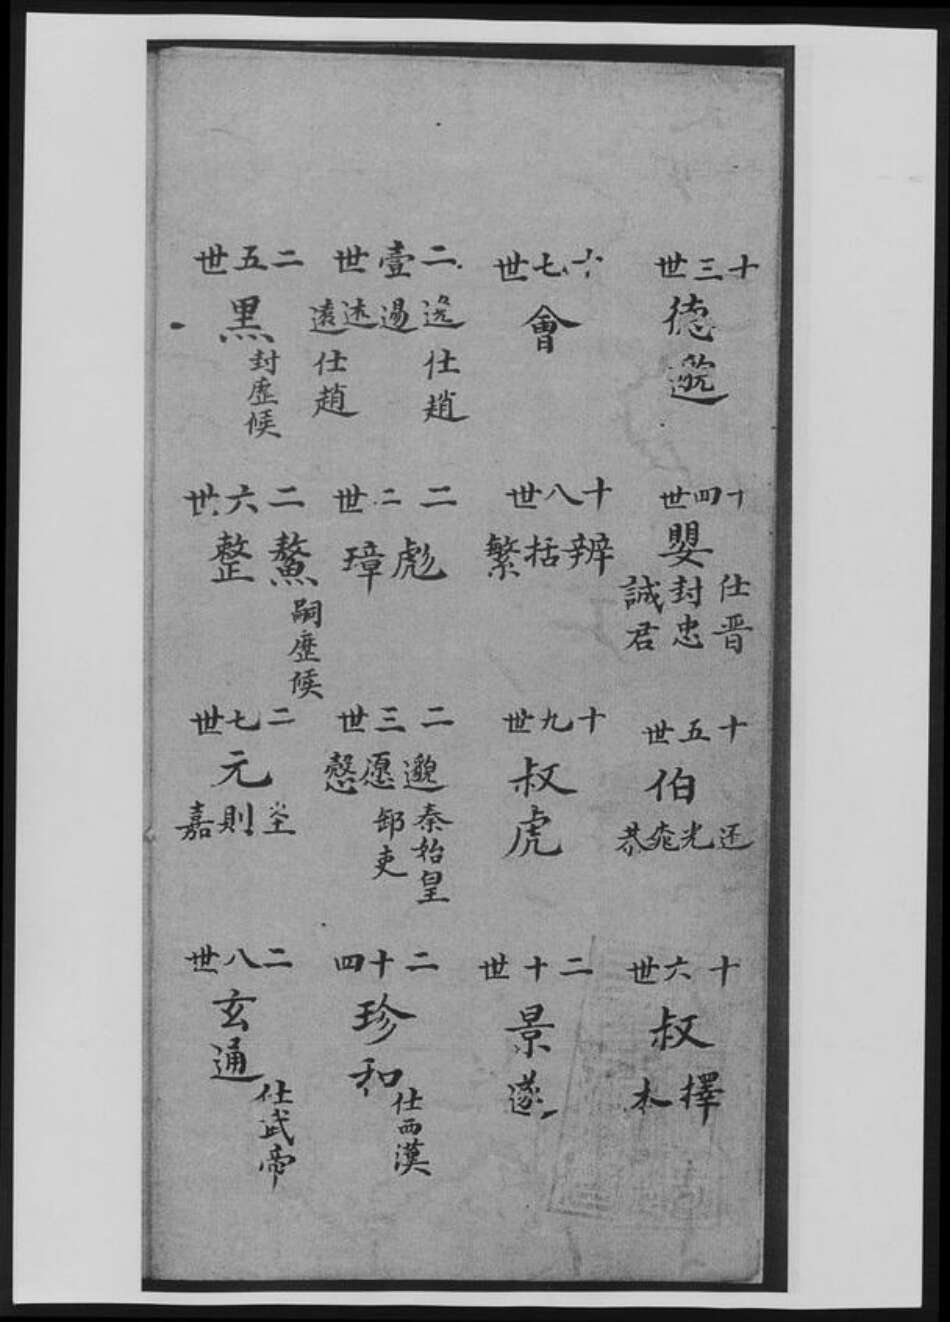 十三世
德邈
十四世
嬰
仕晋
封忠
誠君
十五世
伯
还光
恭
十六世
叔
擇木
十七世
會
十八世
辨括繁
十九世
叔虎
二十世
景邃
二壹世
逖逷逑遠
仕趙
仕趙
二二世
彪璋
二三世
邈愿慤
秦始皇
邹吏
二十四
珍和
仕西漢
二五世
黑
封歷候
二六世
鰲整
嗣歷候
二七世
元
坣則嘉
二八世
玄通
仕武帝